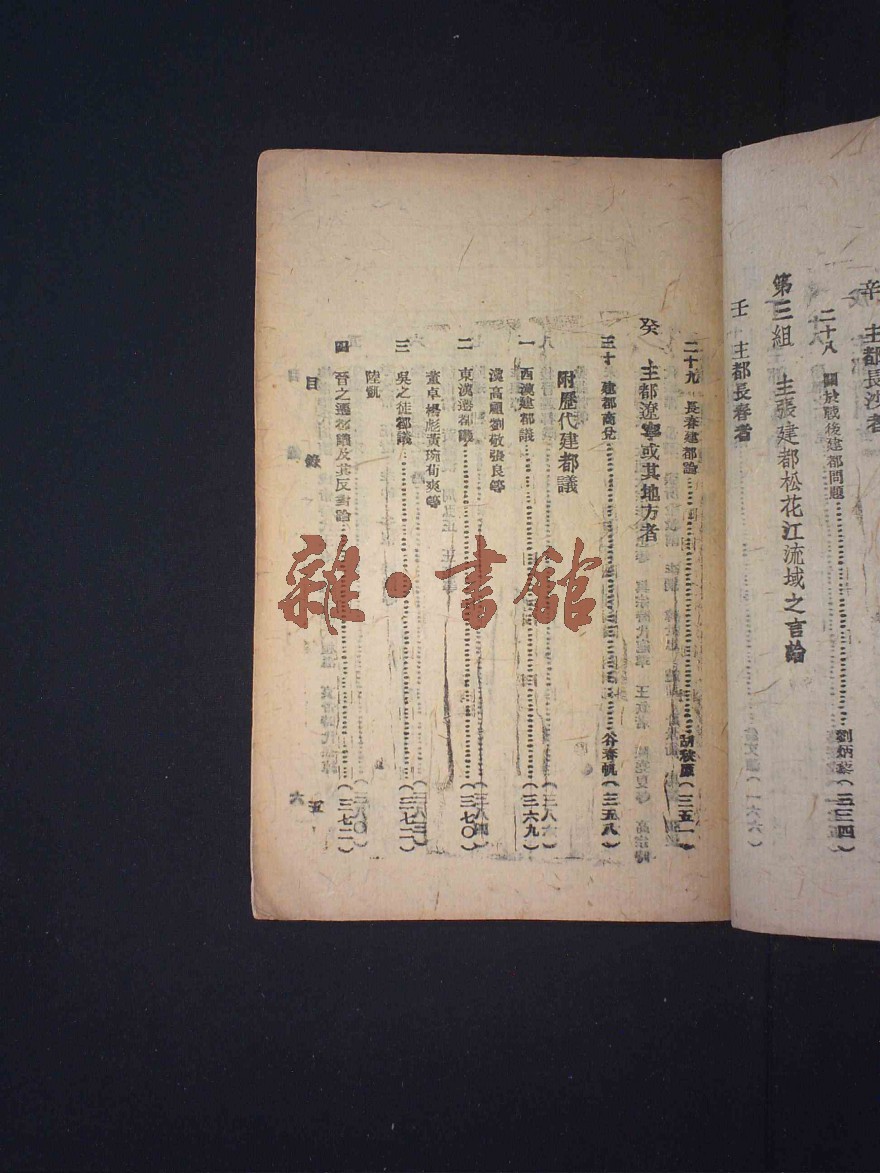 辛　主都長沙者
二十八　關於戰後建都問題……劉炳藜（三三四）
第三組　主張建都松花江流域之言論
壬　主都長春者
二十九　長春建都論……胡秋原（三五一）
癸　主都遼寧或其地方者
三十　建都商兌……谷春帆（三五八）
附歷代建都議
一　西漢建都議……（三六九）
漢高祖劉敬張良等
二　東漢遷都議……（三七〇）
董卓楊彪黃琬荀爽等
三　吳之徒都議……（三七二）
陸凱
四　晉之遷都議及其反對論……（三七二）
目錄
五
雜·書館